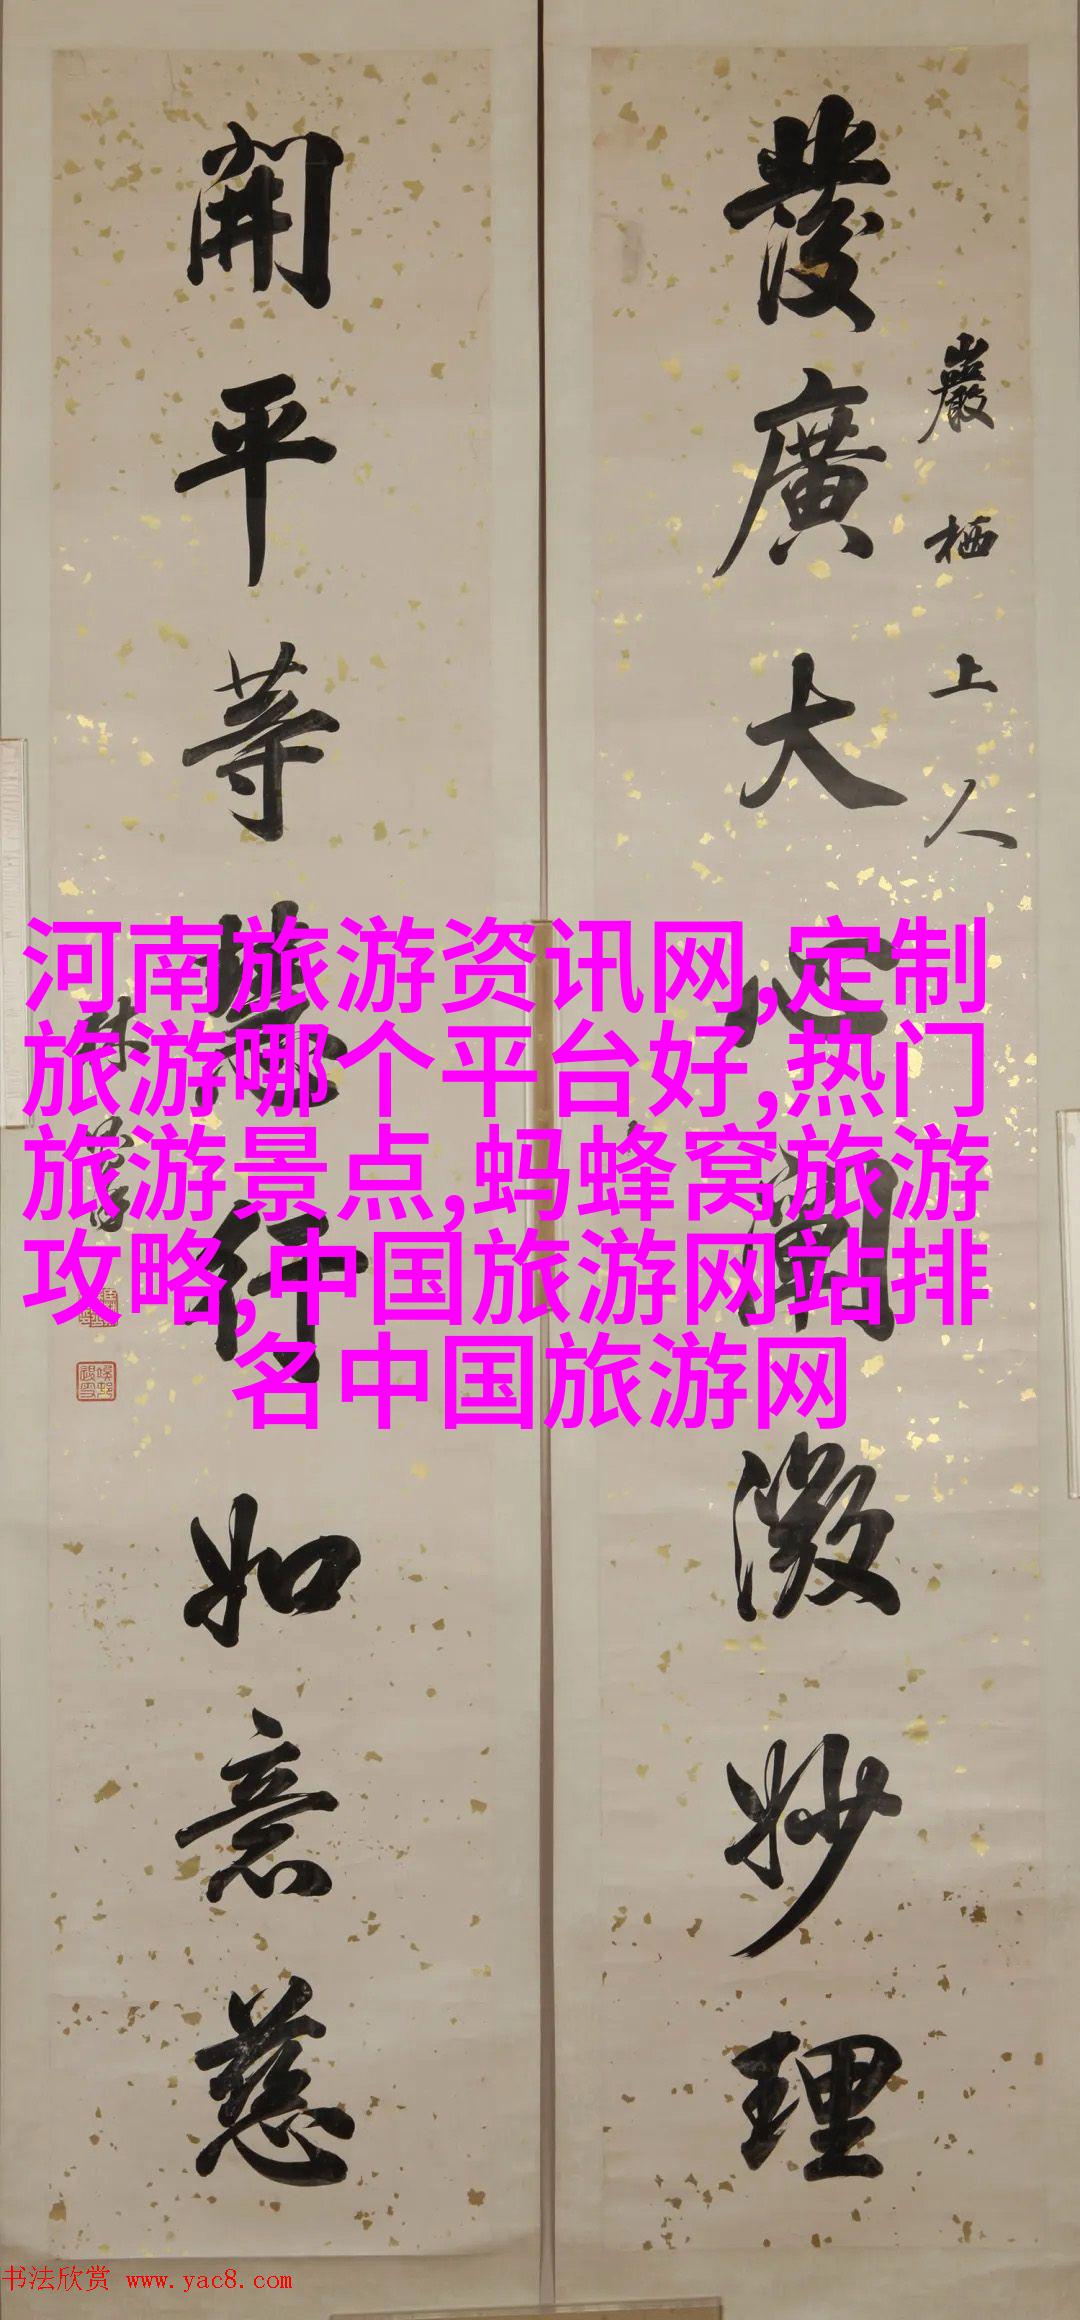 巖栖上人
發廣大心闡微妙理
開平等慧行如意慈
河南旅游资讯网,定制
旅游哪个平台好,热门
旅游景点,蚂蜂窝旅游
攻略,中国旅游网站排
名中国旅游网
书法欣赏 www.yac8.com